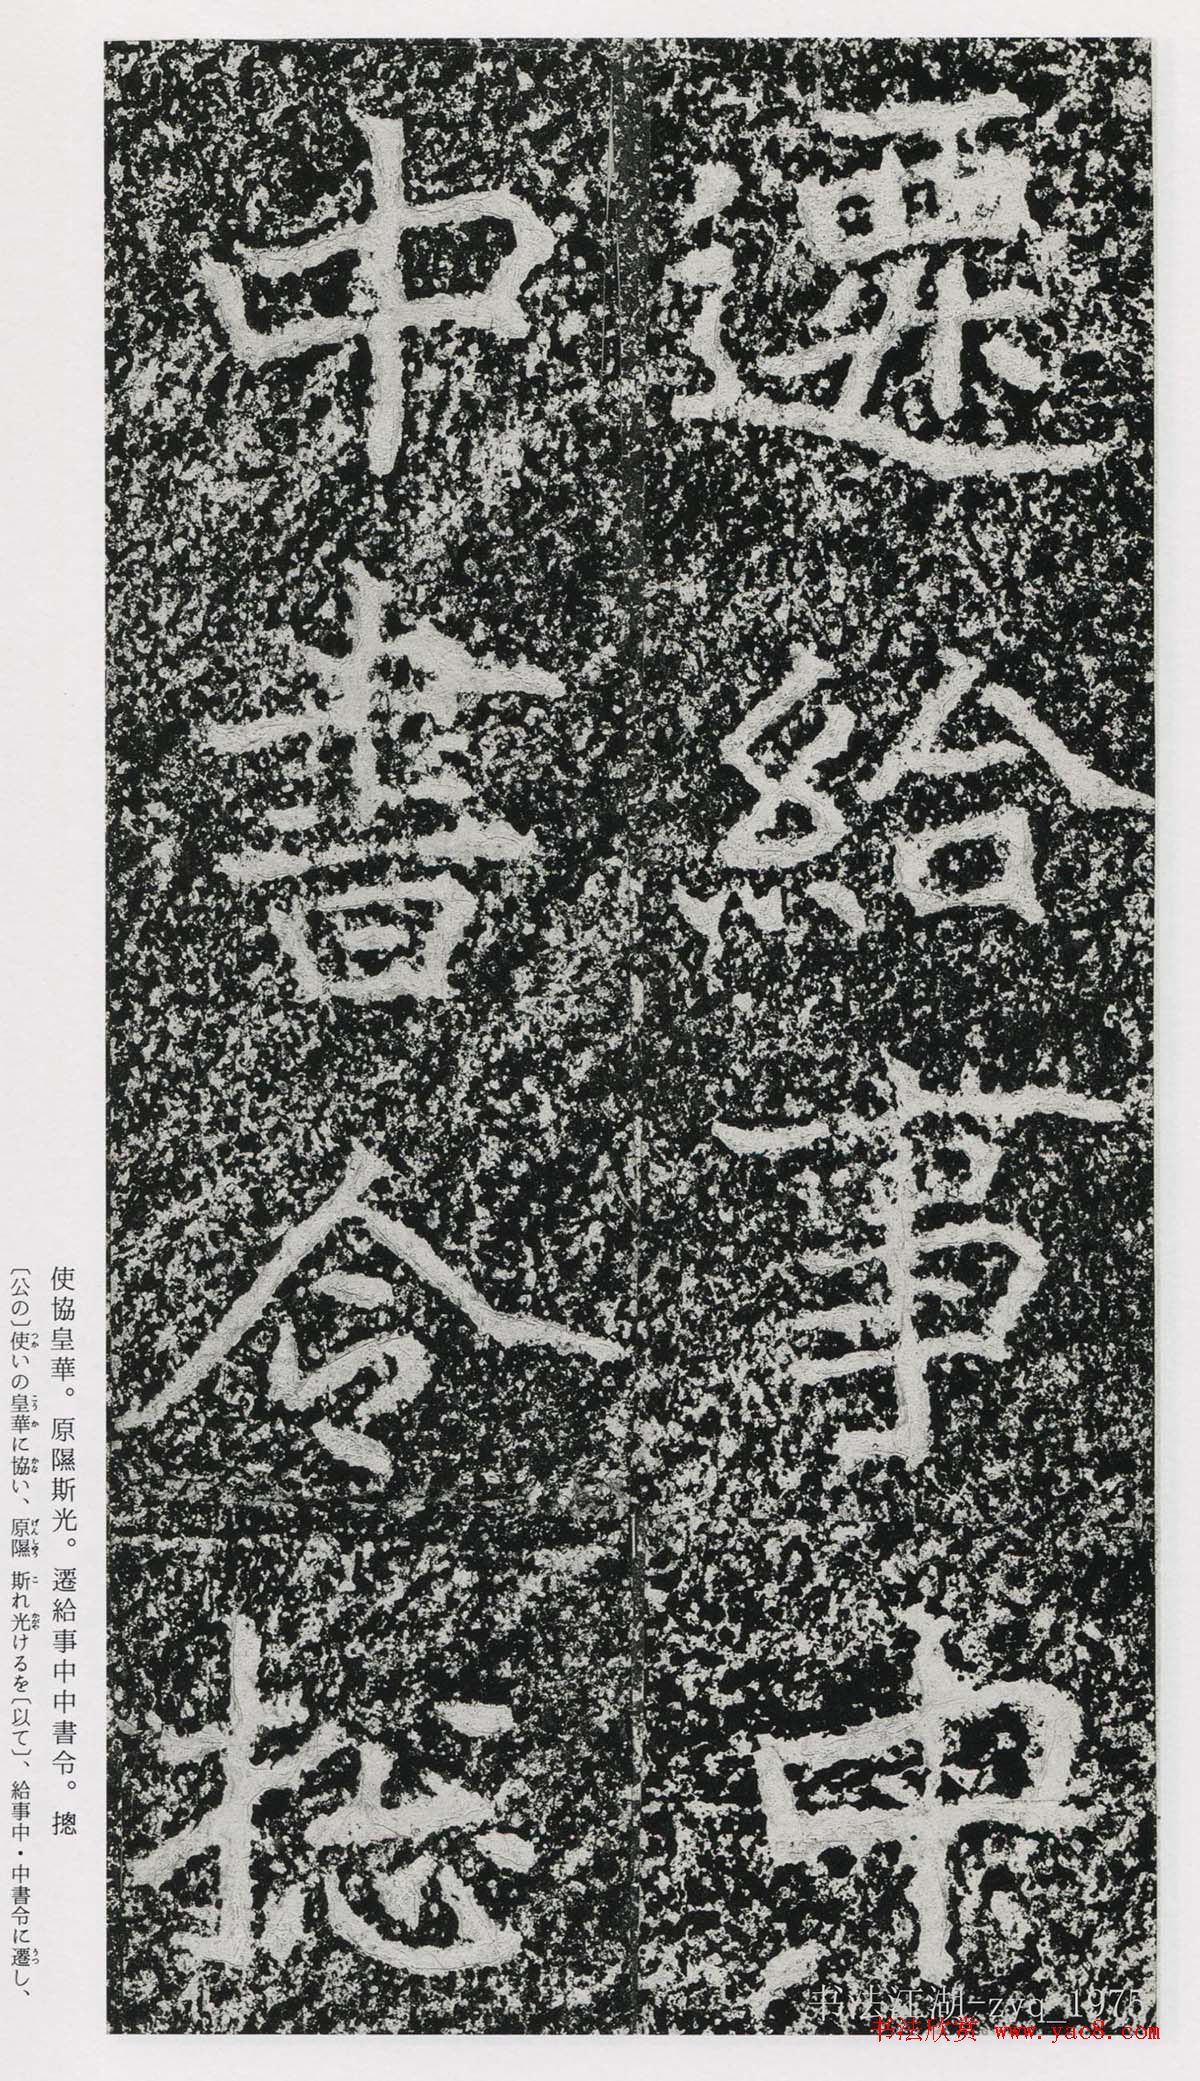 遷給事中
中書令揔
使協皇華。原隰斯光。遷給事中中書令。摠
〔公の〕使いの皇華に協い、原隰斯れ光けるを〔以て〕、給事中・中書令に遷し、
书法江湖-zyq_1975
书法欣赏 www.yac8.com